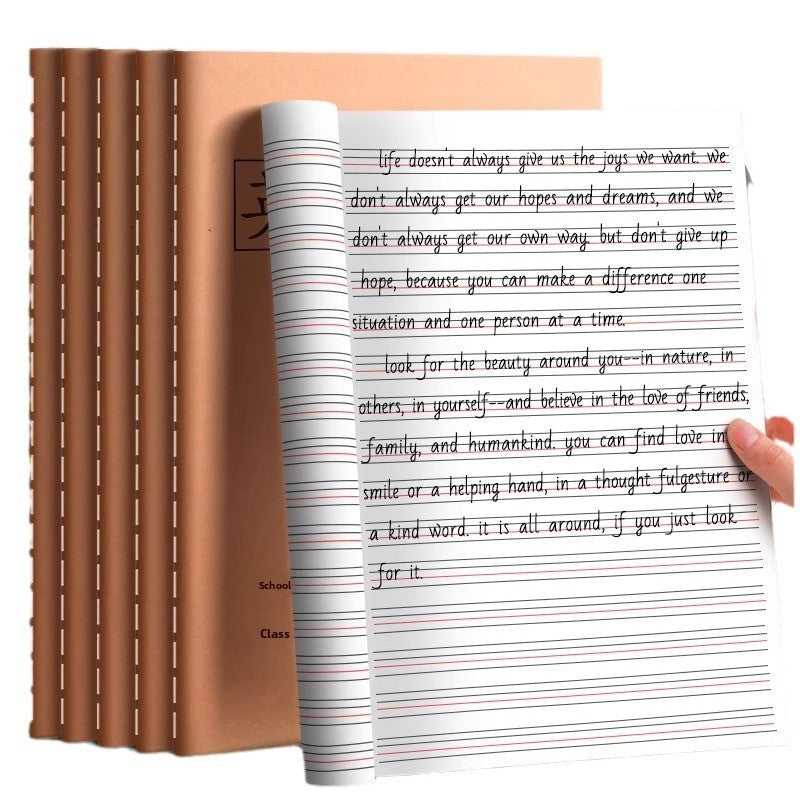 School
Class
life doesn't always give us the joys we want. we
don't always get our hopes and dreams, and we
don't always get our own way. but don't give up
hope, because you can make a difference one
situation and one person at a time.
look for the beauty around you--in nature, in
others, in yourself--and believe in the love of friends,
family, and humankind. you can find love in
smile or a helping hand, in a thought fulgesture or
a kind word. it is all around, if you just look
for it.